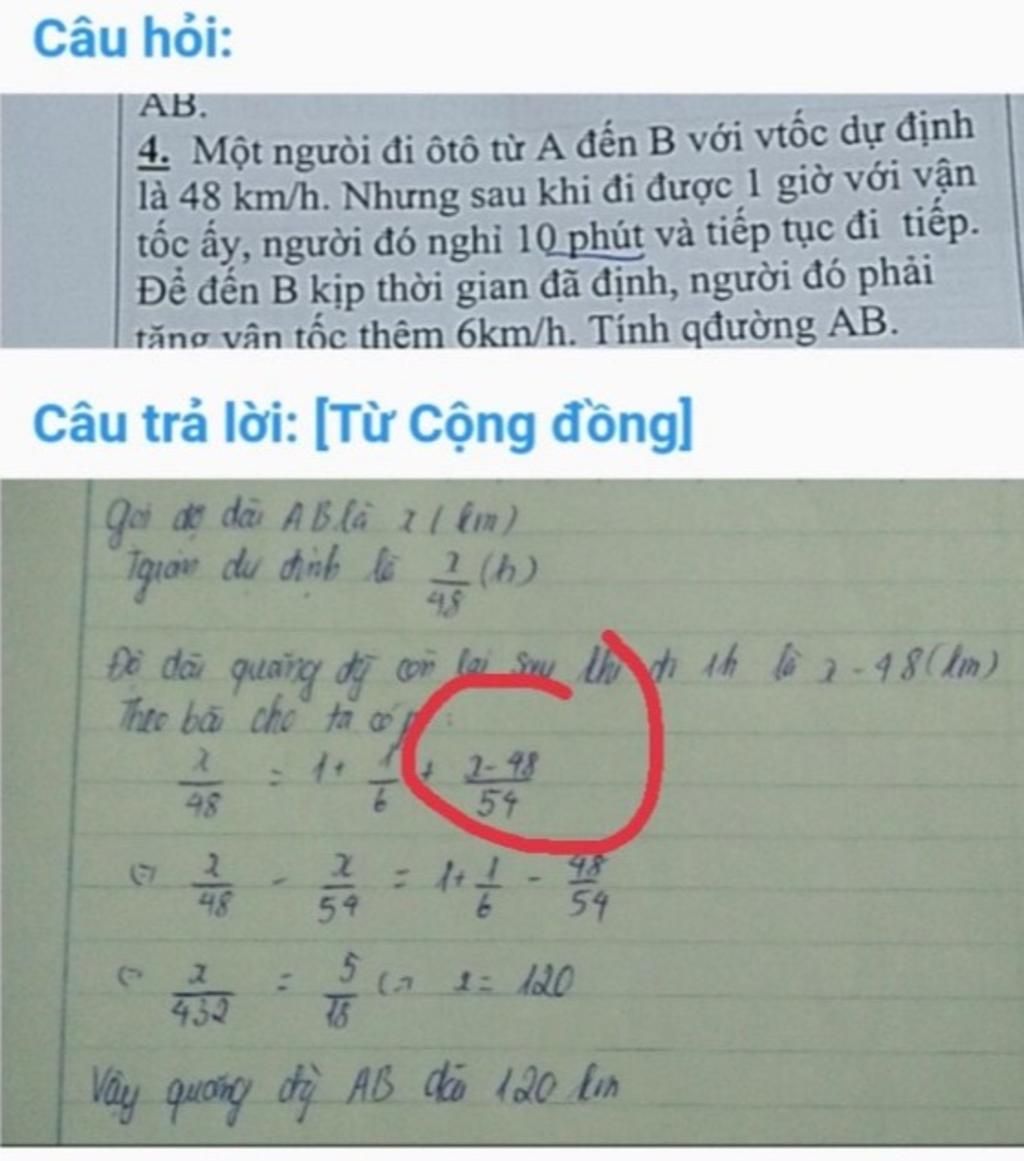 Câu hỏi:
AB.
4. Một người đi ôtô từ A đến B với vtốc dự định
là 48 km/h. Nhưng sau khi đi được 1 giờ với vận
tốc ấy, người đó nghỉ 10 phút và tiếp tục đi tiếp.
Để đến B kịp thời gian đã định, người đó phải
tăng vận tốc thêm 6km/h. Tính qđường AB.
Câu trả lời: [Từ Cộng đồng]
Gọi độ dài AB là x (km)
Tgian dự định là x/48 (h)
Độ dài quãng đg còn lại sau khi đi 1h là x - 48 (km)
Theo bài cho ta có:
x/48 = 1 + 1/6 + x-48/54
<=> x/48 - x/54 = 1 + 1/6 - 48/54
<=> x/432 = 5/18 <=> x = 120
Vậy quãng đg AB dài 120 km